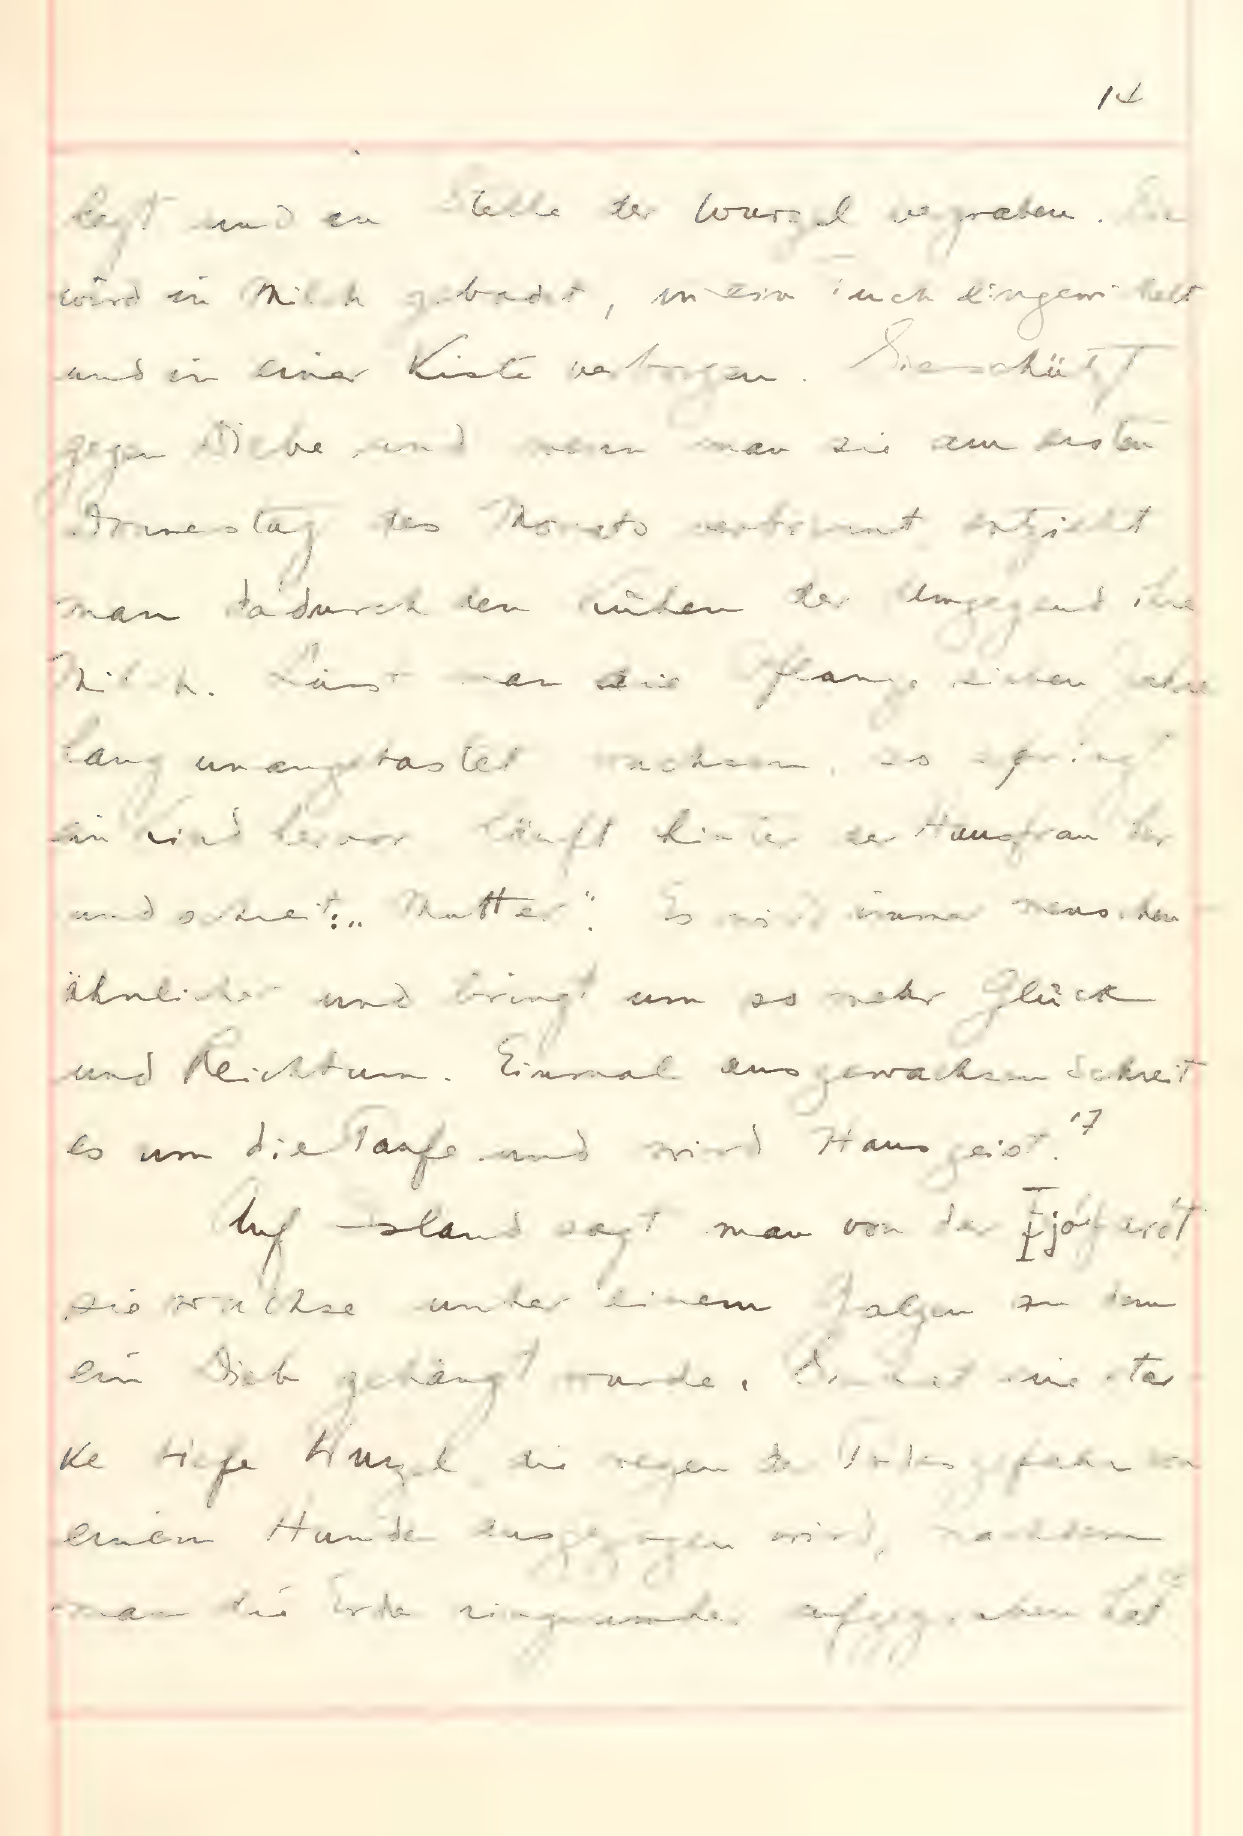 14
legt und an Stelle der Wurzel vergraben. Sie
wird in Milch gebadet, in ein Tuch eingewickelt
und in einer Kiste verborgen. Sie schützt
gegen Diebe und wenn man sie am ersten
Donnerstag des Monats verbrennt entzieht
man dadurch den Kühen der Umgegend ihre
Milch. Lässt man die Pflanze sieben Jahre
lang unangetastet wachsen, so springt
ein Kind hervor läuft hinter der Hausfrau her
und schreit: „Mutter“. Es wird immer menschen
ähnlicher und bringt um so mehr Glück
und Reichtum. Einmal ausgewachsen schreit
es um die Taufe und wird Hausgeist.17
Auf Island sagt man von der
sie wachse unter einem Galgen an dem
ein Dieb gehängt wurde. Sie hat eine star
ke tiefe Wurzel die wegen der Todesgefahr von
einem Hunde ausgezogen wird, nachdem
man die Erde ringsumher aufgegraben hat